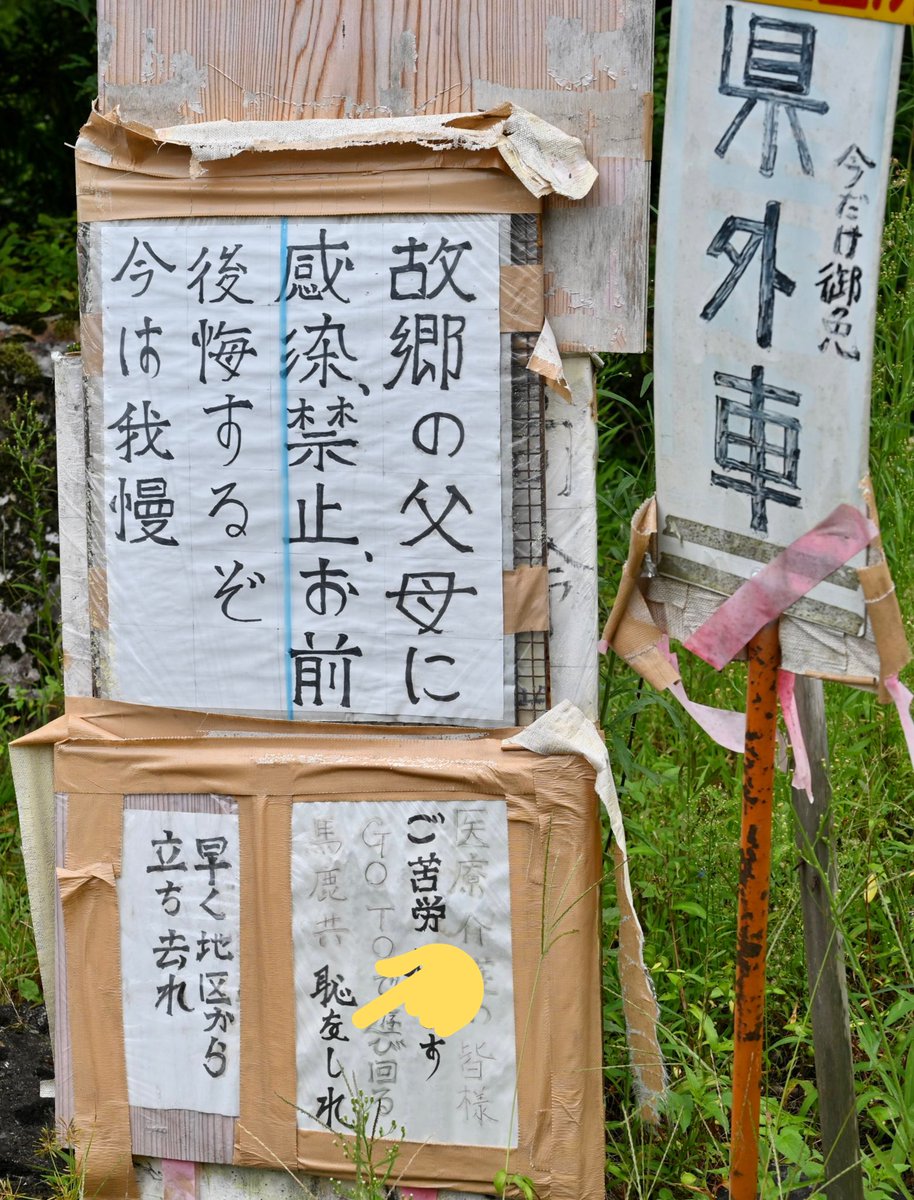 県外車
今だけ御免
故郷の父母に
感染、禁止、お前
後悔するぞ
今は我慢
医療介の皆様
ご苦労す
GO TO遊び回る
馬鹿共 恥をしれ
早く地区から
立ち去れ